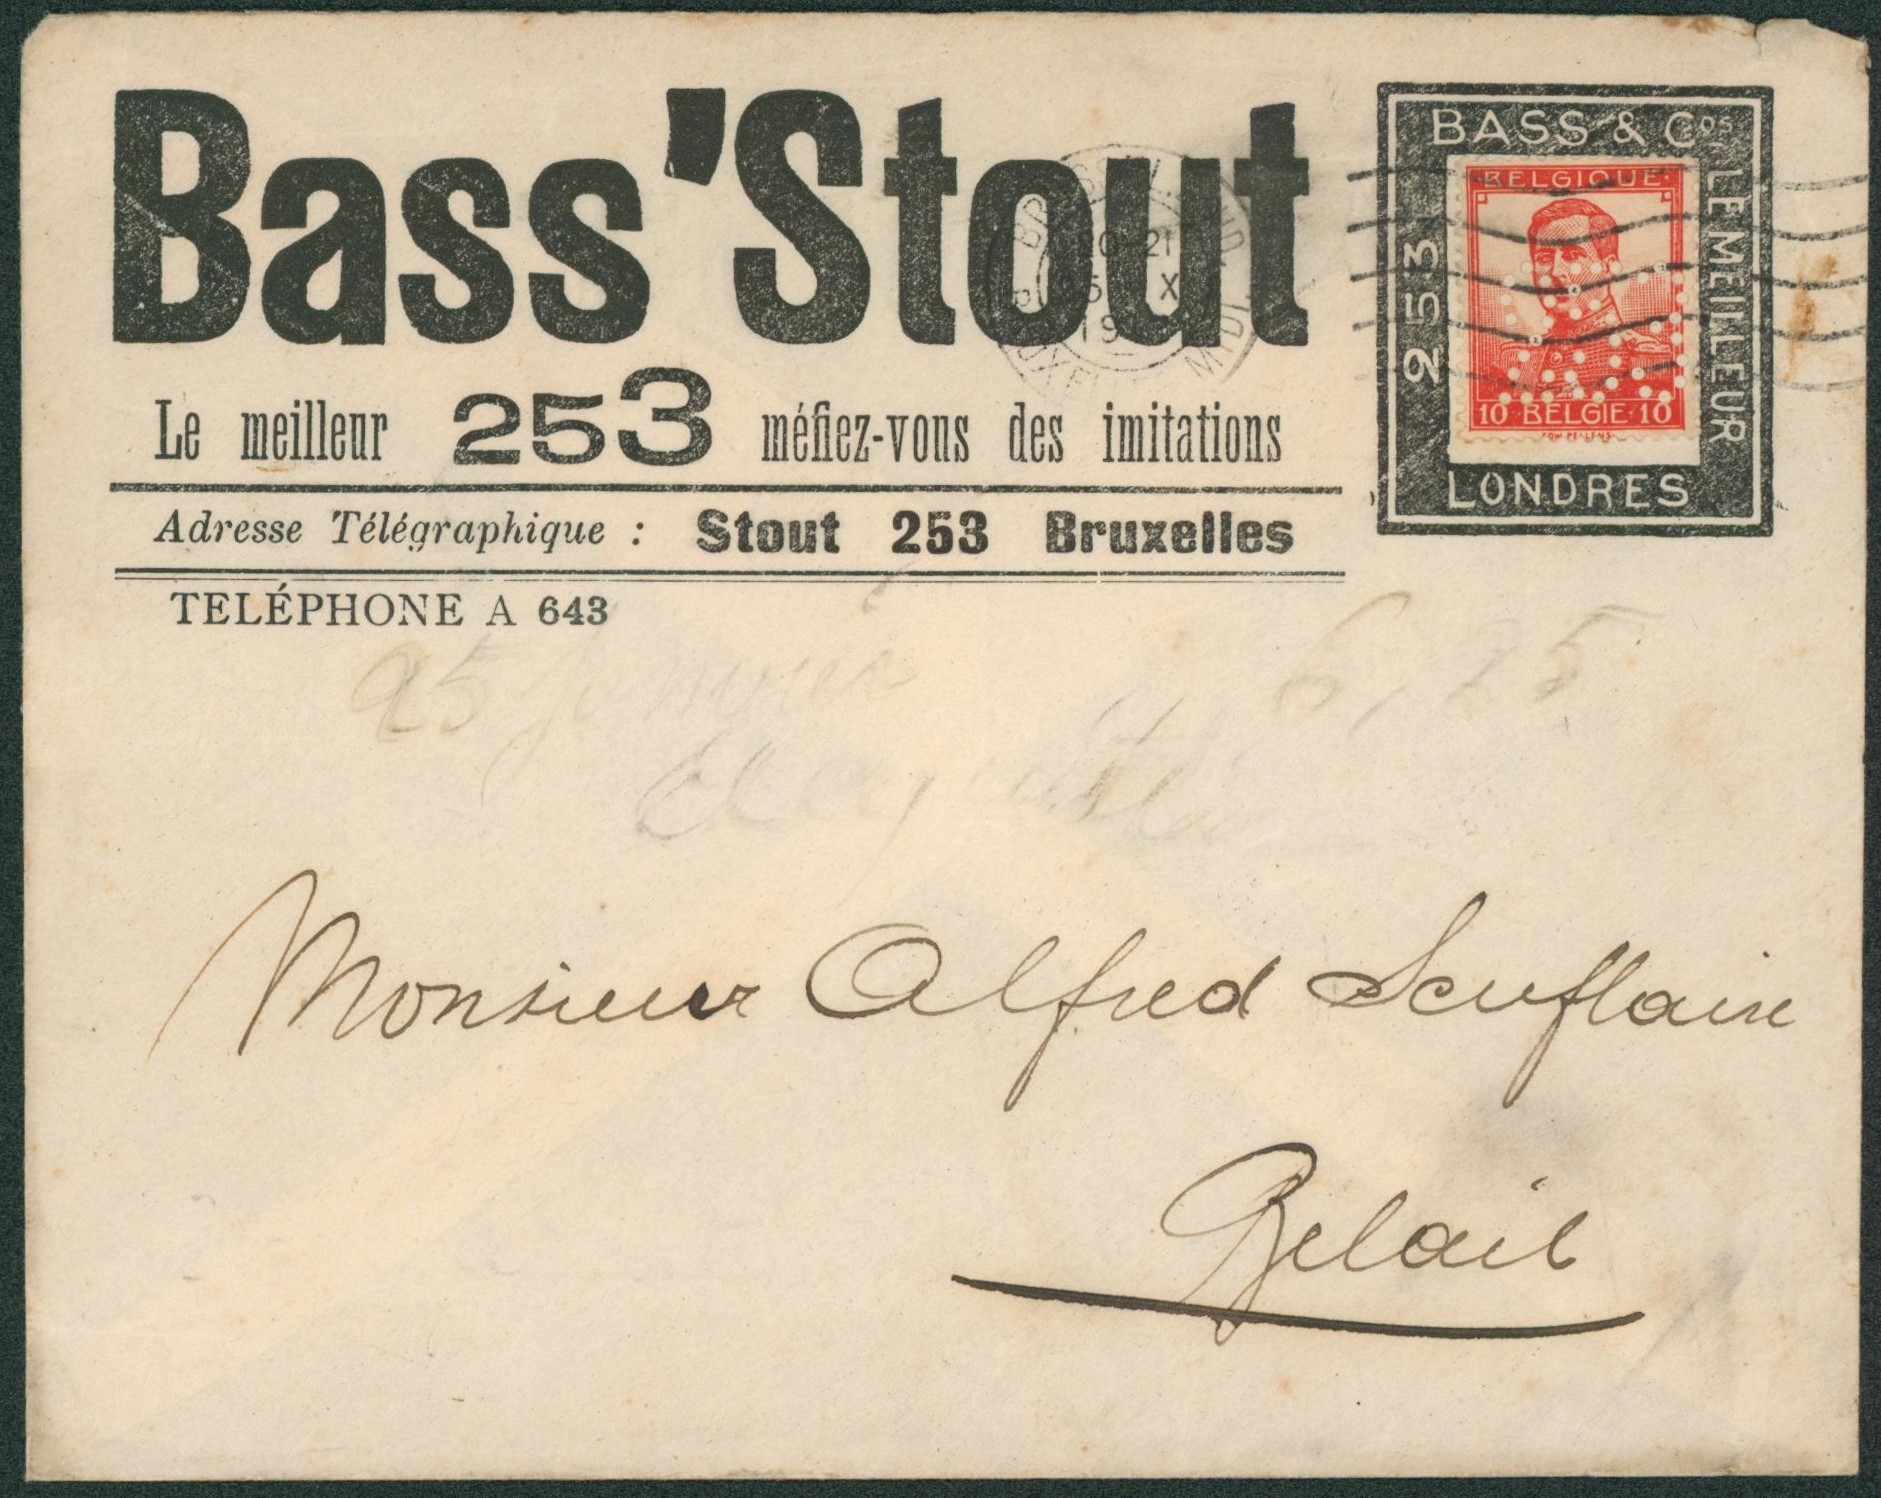 Bass'Stout
Le meilleur 253 méfiez-vous des imitations
Adresse Télégraphique : Stout 253 Bruxelles
TELÉPHONE A 643
BASS & Cos
253
LE MEILLEUR
LONDRES
BELGIQUE
10 BELGIE 10
BRUSSEL ZUID
20-21
5 X
19
BRUXELLES MIDI
6,25
Monsieur Alfred Scuflaire
Belœil